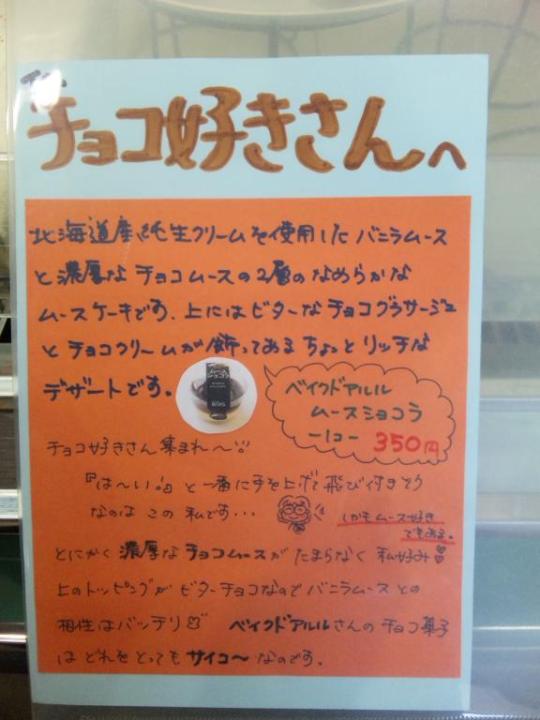 To
チョコ好きさんへ
北海道産純生クリームを使用した バニラムース
と濃厚な チョコムースの2層のなめらかな
ムースケーキです。上にはビターなチョコグラサージュ
とチョコクリームが飾ってある ちょっとリッチな
デザートです。
ベイクドアルル
ムースショコラ
ー1コー 350円
チョコ好きさん集まれ〜
『は〜い』と一番に手を上げて飛び付きそう
なのは この私です・・・
しかもムース好き
でもある。
とにかく濃厚なチョコムースがたまらなく私好み
上のトッピングがビターチョコなのでバニラムースとの
相性はバッチリ ベイクドアルルさんのチョコ菓子
は どれをとっても サイコ〜 なのです。